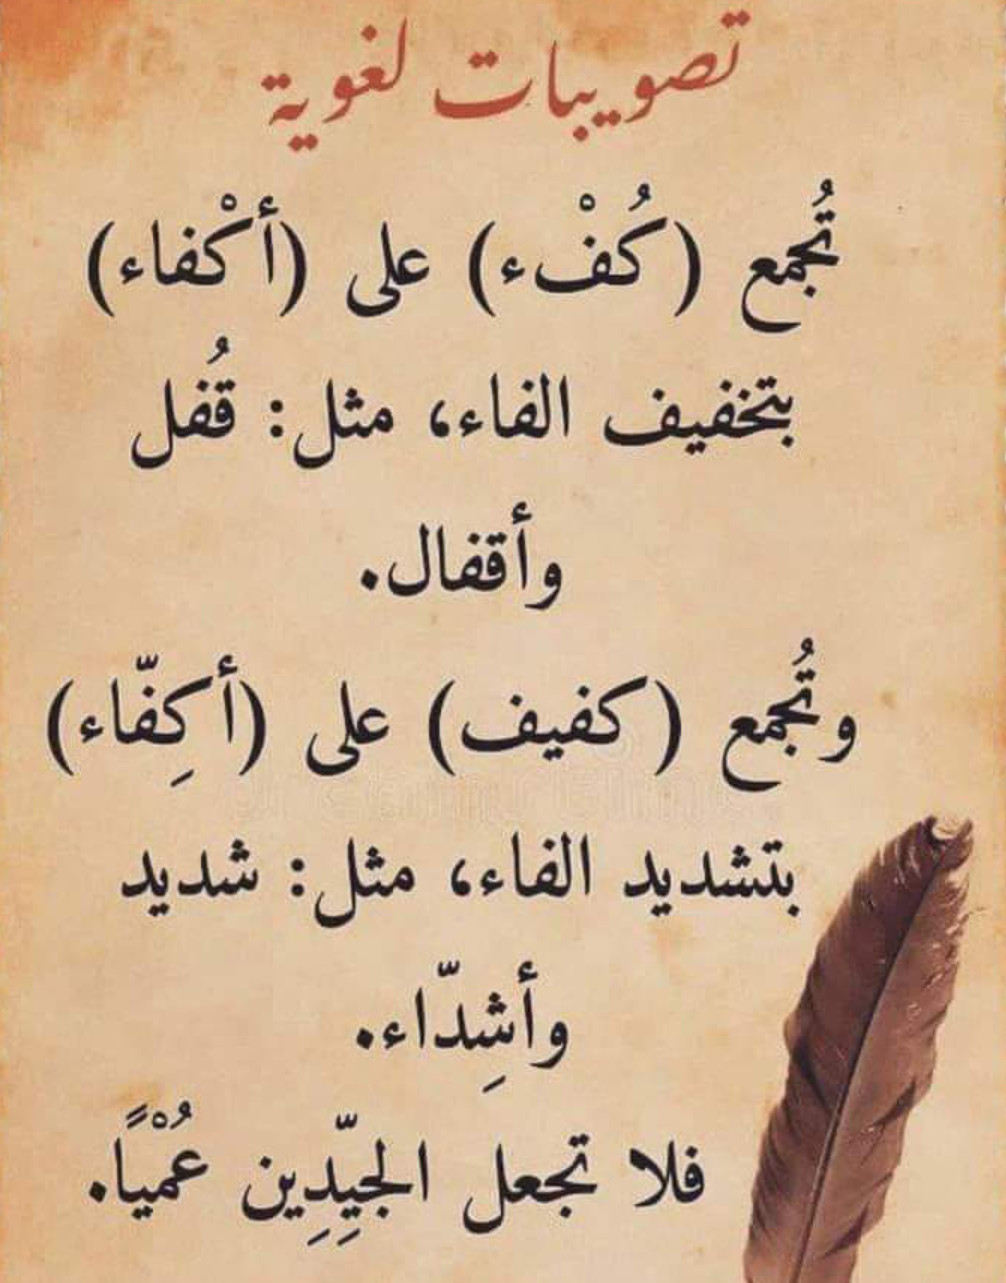 تصويبات لغوية
تُجمع (كُفْء) على (أكْفاء)
بتخفيف الفاء، مثل: قُفل
وأقفال.
وتُجمع (كفيف) على (أكِفّاء)
بتشديد الفاء، مثل: شديد
وأشِدّاء.
فلا تجعل الجيِّدِين عُمْيًا.